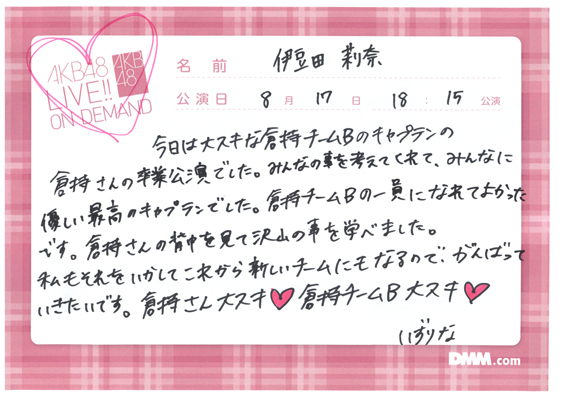 AKB48
LIVE!!
ON DEMAND
AKB
48
名前 伊豆田 莉奈
公演日 8月 17日 18:15 公演
今日は大スキな倉持チームBのキャプテンの
倉持さんの卒業公演でした。みんなの事を考えてくれて、みんなに
優しい最高のキャプテンでした。倉持チームBの一員になれてよかった
です。倉持さんの背中を見て沢山の事を学べました。
私もそれをいかしてこれから新しいチームにもなるので、がんばって
いきたいです。倉持さん大スキ♥倉持チームB大スキ♥
いずりな
DMM.com